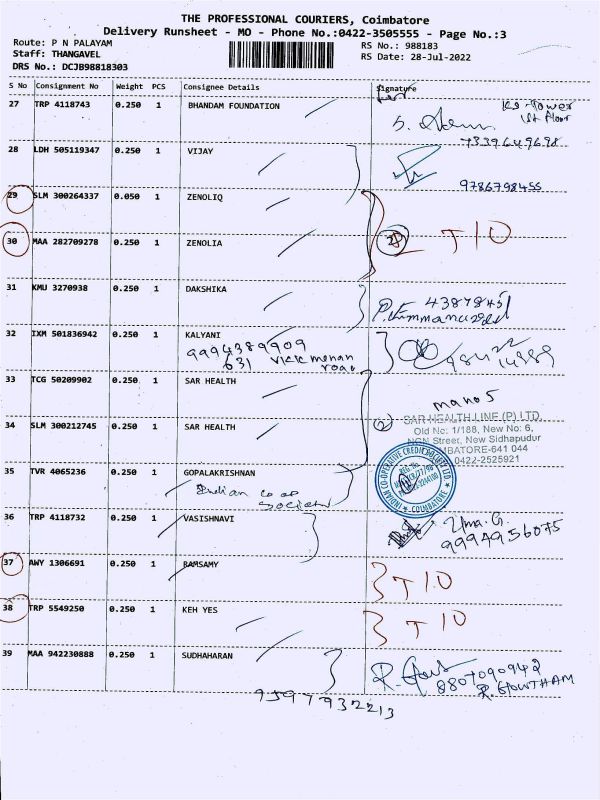 THE PROFESSIONAL COURIERS, Coimbatore
Delivery Runsheet - MO - Phone No.:0422-3505555 - Page No.:3
Route: P N PALAYAM
RS No.: 988183
Staff: THANGAVEL
RS Date: 28-Jul-2022
DRS No.: DCJB98818303
S No Consignment No Weight PCS Consignee Details Signature
27 TRP 4118743 0.250 1 BHANDAM FOUNDATION
28 LDH 505119347 0.250 1 VIJAY
9786798455
29 SLM 300264337 0.050 1 ZENOLIQ
30 MAA 282709278 0.250 1 ZENOLIA
31 KMU 3270938 0.250 1 DAKSHIKA
32 IXM 501836942 0.250 1 KALYANI
9994389909
631 VKK menan
road
33 TCG 50209902 0.250 1 SAR HEALTH
34 SLM 300212745 0.250 1 SAR HEALTH
SAR HEALTH LINE (P) LTD.
Old No: 1/188, New No: 6,
NGN Street, New Sidhapudur
COIMBATORE-641 044
0422-2525921
35 TVR 4065236 0.250 1 GOPALAKRISHNAN
Indian co op
society
36 TRP 4118732 0.250 1 VASISHNAVI
Uma. G.
9994956075
37 AWY 1306691 0.250 1 RAMSAMY
38 TRP 5549250 0.250 1 KEH YES
39 MAA 942230888 0.250 1 SUDHAHARAN
8807090942
R. GOWTHAM
9597932213